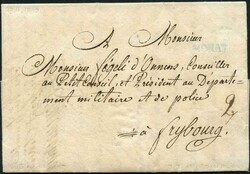 A Monsieur
MORAT
Monsieur Fégeli d'Onnens, Conseiller
au Petit Conseil, et Président au Départe-
ment militaire et de police
2
à Frybourg.